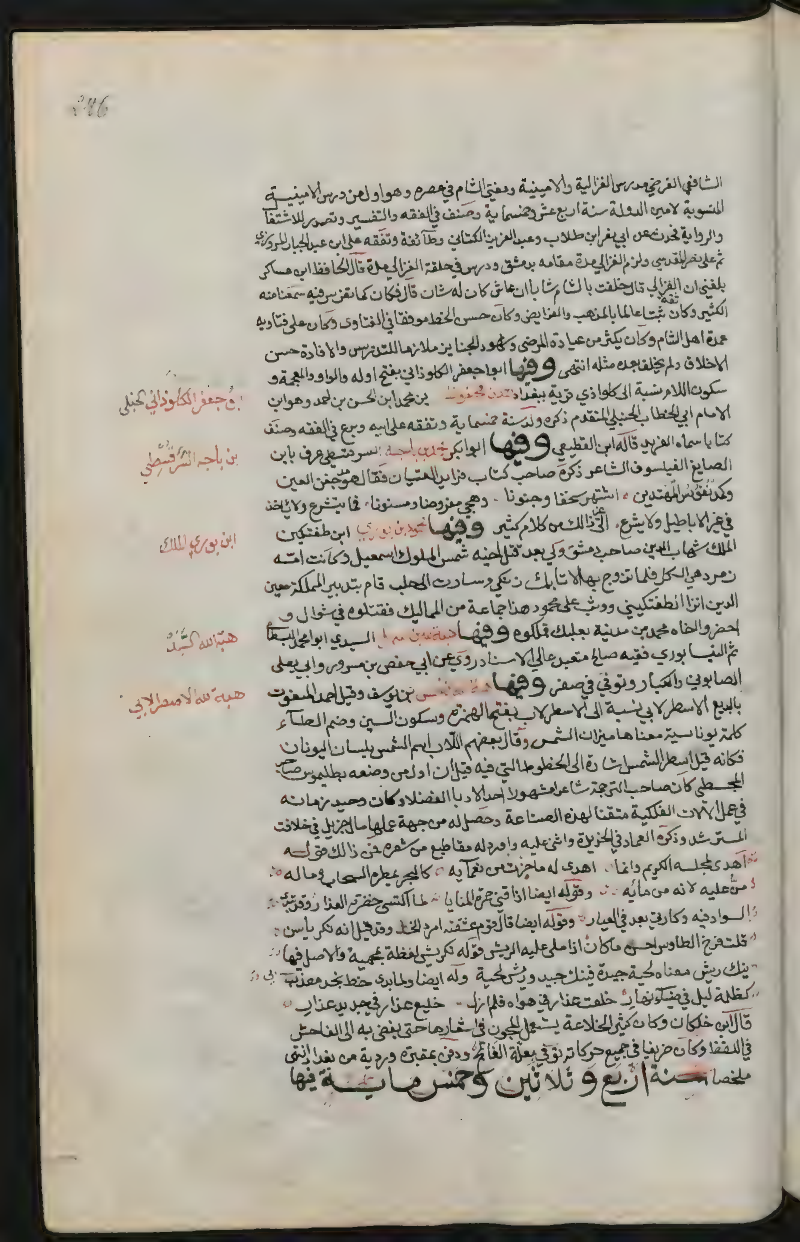 الشافعي الفرضي مدرس الغزالية والامينية ومفتي الشام في عصره وهو اول من درس الامينية
المنسوبة لامين الدولة سنة اربع عشر وخمسماية وصنف في الفقه والتفسير وتصدر للاشتغال
والرواية فحدث عن ابي نصر ابن طلاب وعبد العزيز الكتاني وطائفة وتفقه على ابن عبد الجبار المروزي
ثم على نصر المقدسي ولزم الغزالي مدة مقامه بدمشق ودرس في حلقة الغزالي مدة قال الحافظ ابن عساكر
بلغني ان الغزالي قال خلفت بالشام شابا ان عاش كان له شان قال فكان كما تفرس فيه سمعنا منه
الكثير وكان ثقة ثبتا عالما بالمذهب والفرايض وكان حسن الخط موفقا في الفتاوى وكان على فتاويه
عمدة اهل الشام وكان يكثر من عيادة المرضى وشهود الجنايز ملازما للتدريس والافادة حسن
الاخلاق ولم يخلف بعده مثله انتهى وفيها ابوا جعفر الكلوذاني بفتح اوله والواو والمعجمة و
سكون اللام نسبة الى كلواذي قرية ببغداد محمد بن محفوظ بن محمد ابن الحسن بن احمد وهو ابن
الامام ابي الخطاب الحنبلي المتقدم ذكره ولد سنة خمسماية وتفقه على ابيه وبرع في الفقه وصنف
كتابا سماه الفريد قاله ابن القطيعي وفيها ابوا بكر محمد بن باجة السرقسطي عرف بابن
الصايغ الفيلسوف الشاعر ذكره صاحب كتاب فرايد العقيان فقال هو رمد جفن العين
وكمد نفوس المهتدين اشتهر سخفا وجنونا وهجر مفروضا ومسنونا فما يتشرع ولا ياخذ
في غير الاباطيل ولا يشرع الى غير ذالك من كلام كثير وفيها محمود بن بوري ابن طغتكين
الملك شهاب الدين صاحب دمشق ولي بعد قتل اخيه شمس الملوك اسمعيل وكانت امه
زمرد هي الكل فلما تزوج بها الاتابك زنكي وسارت الى حلب قام بتدبير المملكة معين
الدين انز الطغتكيني ووثب على محمود هذا جماعة من المماليك فقتلوه في شوال و
احضروا اخاه محمد من مدينة بعلبك فملكوه وفيها هبة الله بن سهل السيدي ابوا محمد البسطامي
ثم النيسابوري فقيه صالح متعبد عالي الاسناد روى عن ابي حفص بن مسرور وابي يعلى
الصابوني والكبار وتوفي في صفر وفيها هبة الله بن الحسن بن يوسف وقيل احمد المنعوت
بالبديع الاسطرلابي نسبة الى الاسطرلاب بفتح الهمزة وسكون السين وضم الطاء
كلمة يونانية معناها ميزان الشمس وقال بعضهم اللاب اسم الشمس بلسان اليونان
فكانه قيل اسطر الشمس اشارة الى الخطوط التي فيه قيل ان اول من وضعه بطليموس صاحب
المجسطي كان صاحب الترجمة شاعرا مشهورا احد الادبا الفضلا وكان وحيد زمانه
في عمل الآلات الفلكية متقنا لهذه الصناعة وحصل له من جهة عملها مال جزيل في خلافة
المسترشد وذكره العماد في الخريدة واثنى عليه واورد له مقاطيع من شعره فمن ذالك قوله
اهدى لمجلسه الكريم وانما اهدى له ما حزت من نعمآيه كالبحر يمطره السحاب وما له
من عليه لانه من مائه وقوله ايضا اذاقني حمرة المنايا لما اكتسى خضرة العذار وقد تبدى
السواد فيه وكارتي بعد في العيار وقوله ايضا قال قوم عشقته امرد الخد وقد قيل انه نكريش
قلت فرخ الطاوس احسن ما كان اذا ما علي عليه الريش قوله نكريش لفظة عجمية والاصل فيها
نيك ريش معناه لحية جيدة فنيك جيد وريش لحية وله ايضا ولما بدى خط بخد معذبي
كظلمة ليل في ضياء نهار خلعت عذاري في هواه فلم ازل خليع عذار في جديد عذار
قال ابن خلكان وكان كثير الخلاعة يستعمل المجون في اشعاره حتى يفضي به الى الفاحش
في اللفظ وكان ظريفا في جميع حركاته توفي بعلة الفالج ودفن بمقبرة وردية من بغداد انتهى
ملخصا سنة اربع وثلاثين وخمس ماية فيها
ابو جعفر الكلوذاني الحنبلي
بن باجه السرقسطي
ابن بوري الملك
هبة الله السيد
هبة الله الاصطرلابي